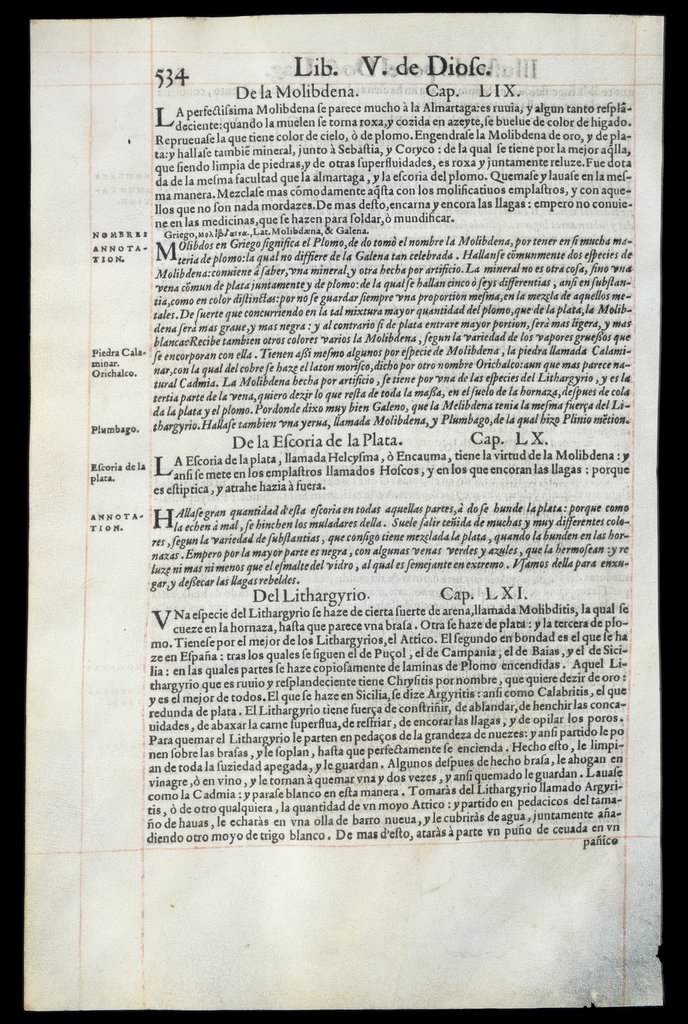 534
Lib. V. de Diosc.
De la Molibdena. Cap. LIX.
LA perfectissima Molibdena se parece mucho à la Almartaga: es ruuia, y algun tanto resplã-
deciente: quando la muelen se torna roxa, y cozida en azeyte, se buelue de color de higado.
Reprueuase la que tiene color de cielo, ò de plomo. Engendrase la Molibdena de oro, y de pla-
ta: y hallase tambiẽ mineral, junto à Sebastia, y Coryco: de la qual se tiene por la mejor aq̃lla,
que siendo limpia de piedras, y de otras superfluidades, es roxa y juntamente reluze. Fue dota
da de la mesma facultad que la almartaga, y la escoria del plomo. Quemase y lauase en la mes-
ma manera. Mezclase mas cõmodamente aq̃sta con los molificatiuos emplastros, y con aque-
llos que no son nada mordazes. De mas desto, encarna y encora las llagas: empero no conuie-
ne en las medicinas, que se hazen para soldar, ò mundificar.
NOMBRES
Griego, μολίβδαινα, Lat. Molibdæna, & Galena.
ANNOTA-
TION.
MOlibdos en Griego significa el Plomo, de do tomò el nombre la Molibdena, por tener en si mucha ma-
teria de plomo: la qual no differe de la Galena tan celebrada. Hallanse cõmunmente dos especies de
Molibdena: conuiene à saber, vna mineral, y otra hecha por artificio. La mineral no es otra cosa, sino vna
vena cõmun de plata juntamente y de plomo: de la qual se hallan cinco ò seys differencias, ansi en substan-
tia, como en color distinctas: por no se guardar siempre vna proportion mesma, en la mezcla de aquellos me-
tales. De suerte que concurriendo en la tal mixtura mayor quantidad del plomo, que de la plata, la Molib-
dena será mas graue, y mas negra: y al contrario si de plata entrare mayor portion, será mas ligera, y mas
blanca: Recibe tambien otros colores varios la Molibdena, segun la variedad de los vapores gruessos que
se encorporan con ella. Tienen assi mesmo algunos por especie de Molibdena, la piedra llamada Calami-
Piedra Cala-
minar.
Orichalco.
nar, con la qual del cobre se haze el laton morisco, dicho por otro nombre Orichalco: aun que mas parece na-
tural Cadmia. La Molibdena hecha por artificio, se tiene por vna de las especies del Lithargyrio, y es la
tertia parte de la vena, quiero dezir lo que resta de toda la massa, en el suelo de la hornaza, despues de cola
da la plata y el plomo. Por donde dixo muy bien Galeno, que la Melibdena tenia la mesma fuerça del Li-
Plumbago.
thargyrio. Hallase tambien vna yerua, llamada Molibdena, y Plumbago, de la qual hizo Plinio mẽtion.
De la Escoria de la Plata. Cap. LX.
Escoria de la
plata.
LA Escoria de la plata, llamada Helcysma, ò Encauma, tiene la virtud de la Molibdena: y
ansi se mete en los emplastros llamados Hoscos, y en los que encoran las llagas: porque
es estiptica, y atrahe hazia à fuera.
ANNOTA-
TION.
HAllase gran quantidad d'esta escoria en todas aquellas partes, à do se hunde la plata: porque como
la echen à mal, se hinchen los muladares della. Suele salir teñida de muchas y muy differentes colo-
res, segun la variedad de substantias, que consigo tiene mezclada la plata, quando la hunden en las hor-
nazas. Empero por la mayor parte es negra, con algunas venas verdes y azules, que la hermosean: y re
luze ni mas ni menos que el esmalte del vidro, al qual es semejante en extremo. Vsamos della para enxu-
gar, y dessecar las llagas rebeldes.
Del Lithargyrio. Cap. LXI.
VNa especie del Lithargyrio se haze de cierta suerte de arena, llamada Molibditis, la qual se
cueze en la hornaza, hasta que parece vna brasa. Otra se haze de plata: y la tercera de plo-
mo. Tienese por el mejor de los Lithargyrios, el Attico. El segundo en bondad es el que se ha
ze en España: tras los quales se siguen el de Puçol, el de Campania, el de Baias, y el de Sici-
lia: en las quales partes se haze copiosamente de laminas de Plomo encendidas. Aquel Li-
thargyrio que es ruuio y resplandeciente tiene Chrysitis por nombre, que quiere dezir de oro:
y es el mejor de todos. El que se haze en Sicilia, se dize Argyritis: ansi como Calabritis, el que
redunda de plata. El Lithargyrio tiene fuerça de constriñir, de ablandar, de henchir las conca-
uidades, de abaxar la carne superflua, de resfriar, de encorar las llagas, y de opilar los poros.
Para quemar el Lithargyrio le parten en pedaços de la grandeza de nuezes: y ansi partido le po
nen sobre las brasas, y le soplan, hasta que perfectamente se encienda. Hecho esto, le limpi-
an de toda la suziedad apegada, y le guardan. Algunos despues de hecho brasa, le ahogan en
vinagre, ò en vino, y le tornan à quemar vna y dos vezes, y ansi quemado le guardan. Lauase
como la Cadmia: y parase blanco en esta manera. Tomaràs del Lithargyrio llamado Argyri-
tis, ò de otro qualquiera, la quantidad de vn moyo Attico: y partido en pedacicos del tama-
ño de hauas, le echaràs en vna olla de barro nueua, y le cubriràs de agua, juntamente aña-
diendo otro moyo de trigo blanco. De mas d'esto, ataràs à parte vn puño de ceuada en vn
pañico